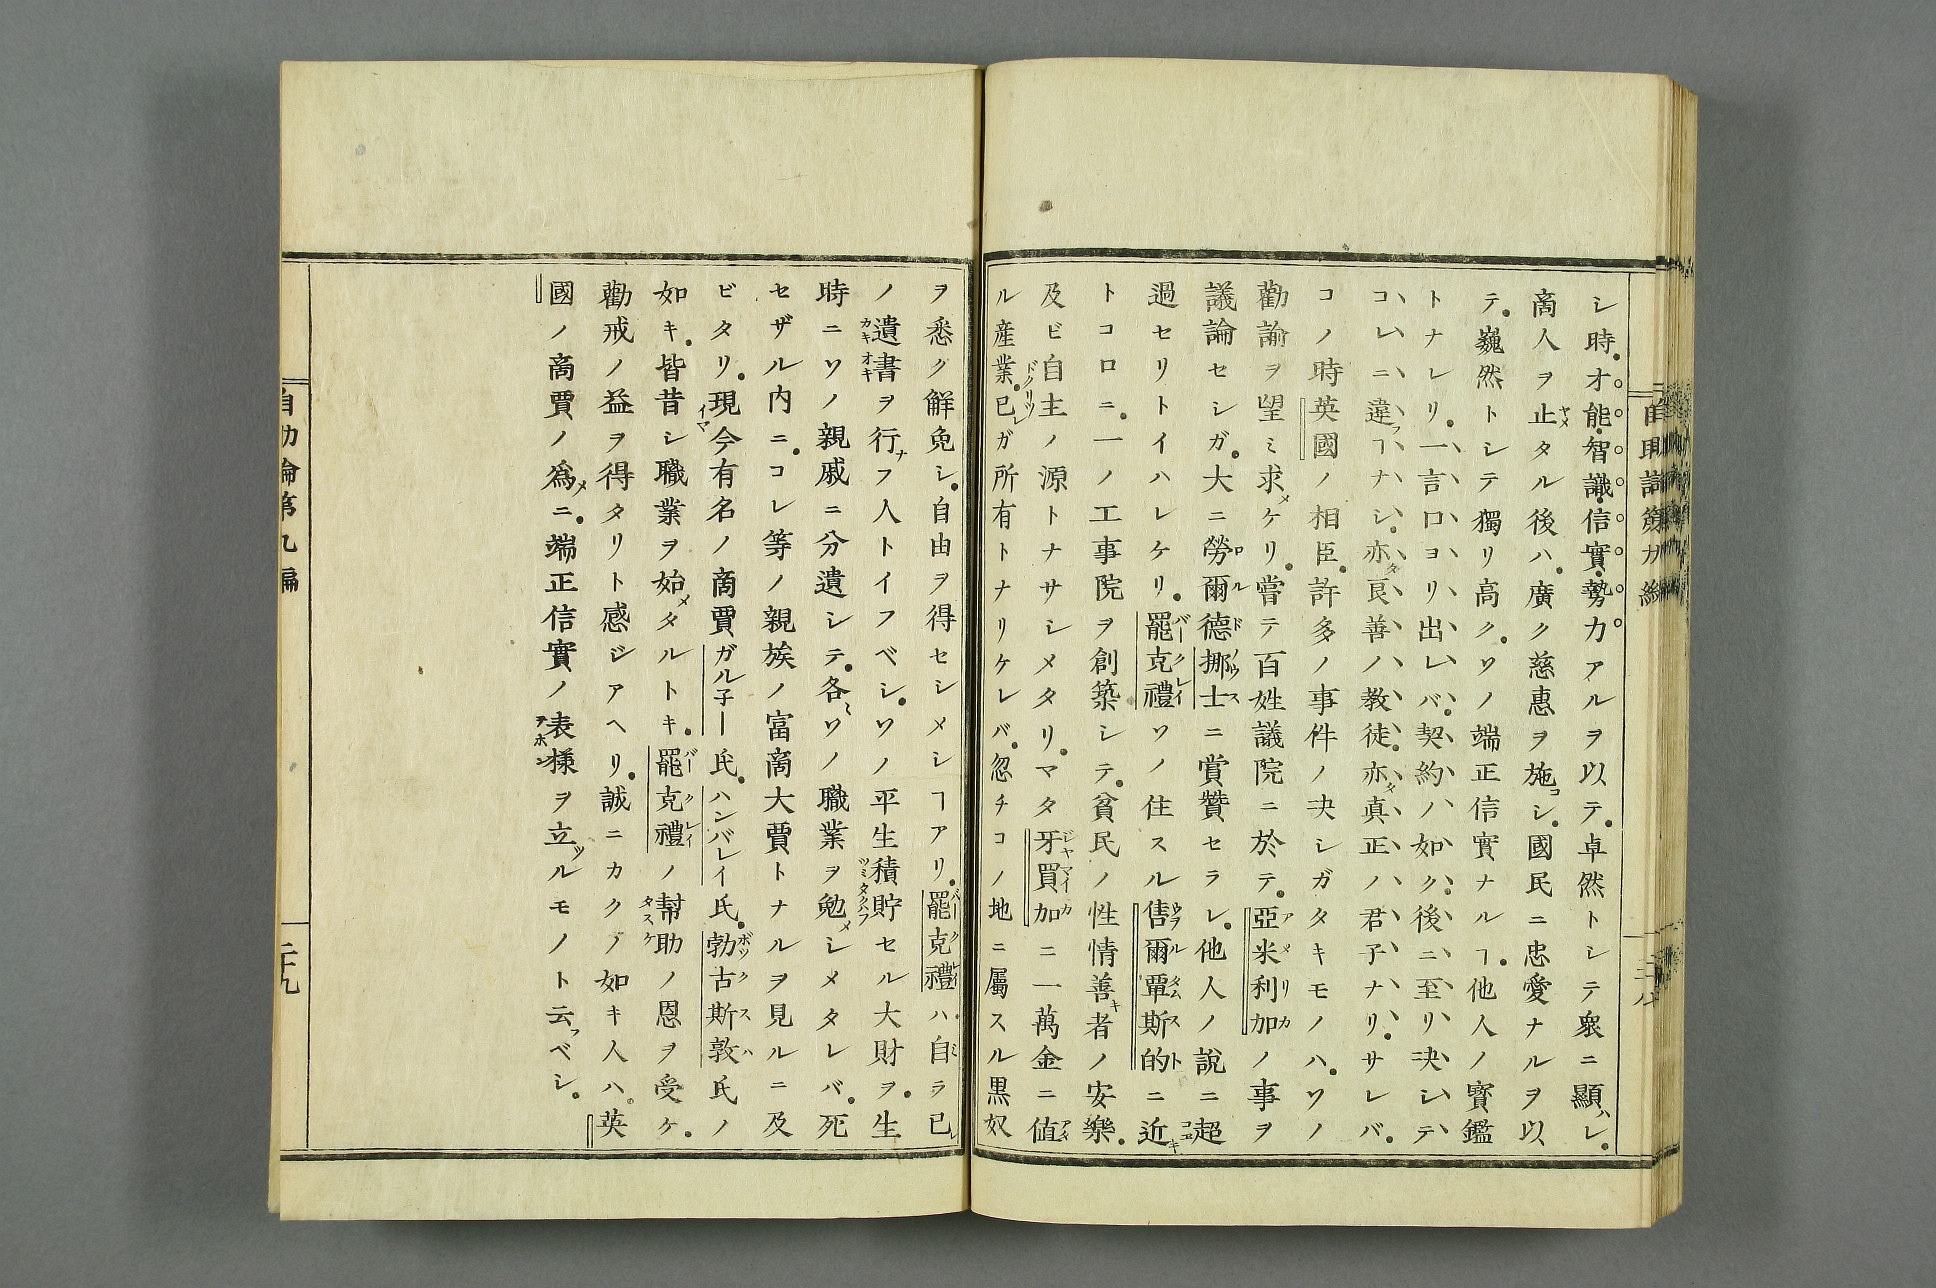 シ時。才能。智識。信實。勢力アルヲ以テ。卓然トシテ衆ニ顯ハレ。
商人ヲ止タル後ハ。廣ク慈惠ヲ施コシ。國民ニ忠愛ナルヲ以
テ。巍然トシテ獨リ高ク。ソノ端正信實ナルヿ。他人ノ寳鑑
トナレリ。一言口ヨリ出レバ。契約ノ如ク。後ニ至リ决シテ
コレニ違フヿナシ。亦タ良善ノ教徒。亦タ真正ノ君子ナリ。サレバ。
コノ時英國ノ相臣。許多ノ事件ノ决シガタキモノハ。ソノ
勸諭ヲ望ミ求メケリ。嘗テ百姓議院ニ於テ。亞米利加ノ事ヲ
議論セシガ。大ニ勞爾德挪士ニ賞贊セラレ。他人ノ說ニ超
過セリトイハレケリ。罷克禮ソノ住スル售爾覃斯的ニ近キ
トコロニ。一ノ工事院ヲ創築シテ。貧民ノ性情善キ者ノ安樂。
及ビ自主ノ源トナサシメタリ。マタ牙買加ニ一萬金ニ値
ル產業。已レガ所有トナリケレバ。忽チコノ地ニ屬スル黒奴
ヲ悉ク觧免シ。自由ヲ得セシメシヿアリ。罷克禮ハ自ミラ已レ
ノ遺書ヲ行ナフ人トイフベシ。ソノ平生積貯セル大財ヲ。生
時ニソノ親戚ニ分遺シテ。各ミソノ職業ヲ勉メシメタレバ。死
セザル内ニ。コレ等ノ親族ノ富商大賈トナルヲ見ルニ及
ビタリ。現今有名ノ商賈ガル子ー氏。ハンバレイ氏。勃古斯敦氏ノ
如キ。皆昔シ職業ヲ始メタルトキ。罷克禮ノ幇助ノ恩ヲ受ケ。
勸戒ノ益ヲ得タリト感ジアヘリ。誠ニカクノ如キ人ハ。英
國ノ商賈ノ爲メニ。端正信實ノ表樣ヲ立ツルモノト云フベシ。
自助論第九編
二十九